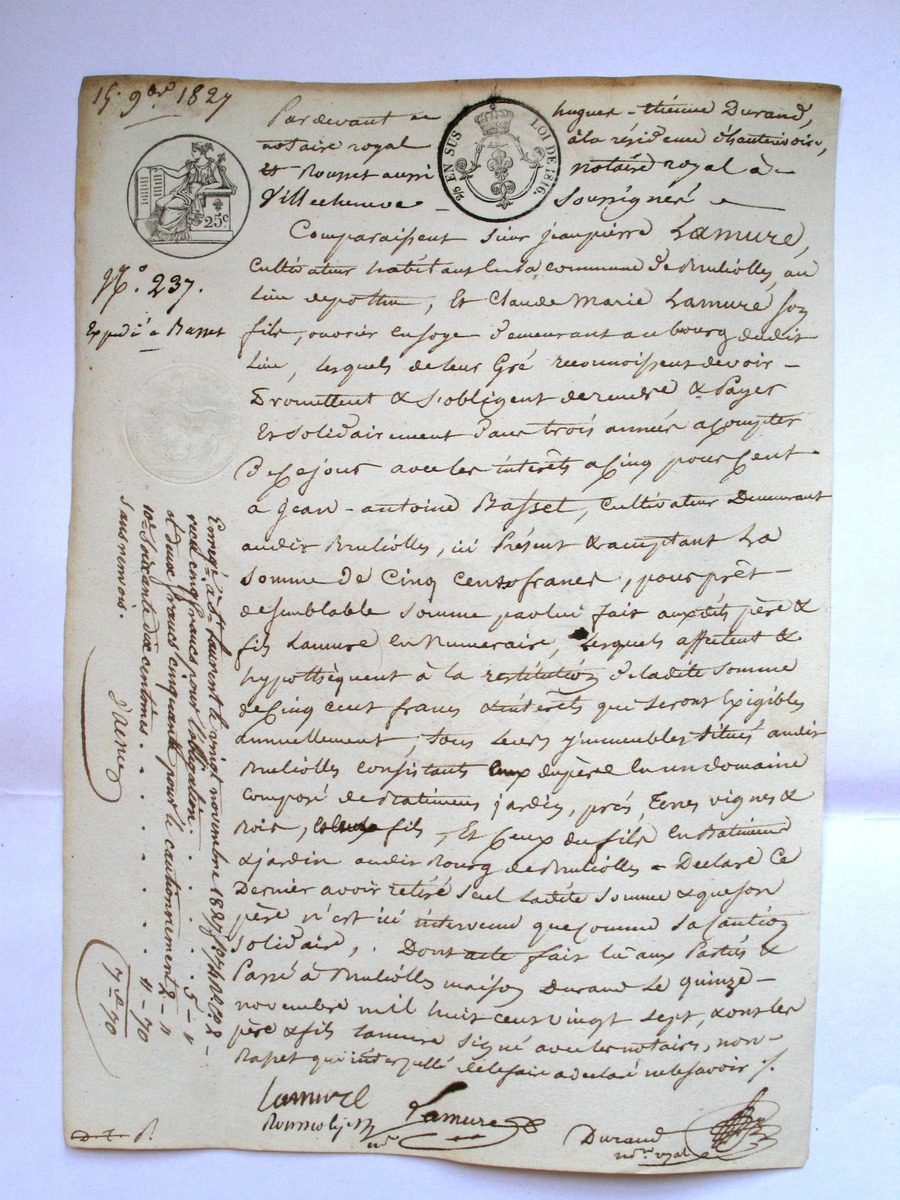 15. 9bre 1827
Pardevant hugues-étienne Durand,
notaire royal à la résidence d'hauterivoire,
et Rousset aussi notaire royal à
Villecheneve Soussignés
2/5 EN SUS LOI DE 1816.
25c
N° 237.
Expedié à Basset
Comparaissent sieur jeanpierre Lamure,
Cultivateur habitant en la commune de Brulliolles, au
Lieu de pothu, Et Claude Marie Lamure son
fils, ouvrier en soye demeurant au bourg dudit
Lieu, lesquels de leur Gré reconnoissent devoir
Promettent & s'obligent de rendre & Payer
Et solidairement dans trois années a compter
de Ce jour avec les interêts a Cinq pour Cent
a jean-antoine Basset, Cultivateur Demeurant
audit Brulliolles, ici Présent & acceptant La
Somme de Cinq Cents francs, pour prêt
de semblable somme par lui fait auxdits père &
fils Lamure en Numeraire, Lesquels affectent &
hypothèquent à la restitution de ladite somme
de Cinq cent francs & intérêts qui seront Exigibles
annuellement, tous leurs immeubles situés audit
Brulliolles consistants Ceux du père En un domaine
Composé de Batimens jardin, prés, Terres vignes &
Bois, fils, Et Ceux du fils En Batimens
& jardin audit Bourg de Brulliolles - Declare Ce
Dernier avoir retiré seul Ladite Somme & que son
père n'est ici intervenu que comme Sa Caution
Solidaire, . Dont acte fait Lu aux Parties &
Passé à Brulliolles maison Durand Le quinze
novembre mil huit cent vingt sept, & ont les
père & fils Lamure signé avec les notaires, non
Basset qui interpellé de le faire a declaré ne le savoir ./.
Lamure
Lamure
Durand
nore royal
Enregé à St Laurent le vingt novembre 1827,
reçu cinq francs pour l'obligation. . . . . 5 - "
et deux francs cinquante pour le cautionnement 2 -
10e Soixante dix centimes. . . . . . . . . " - 70
Sans renvois.